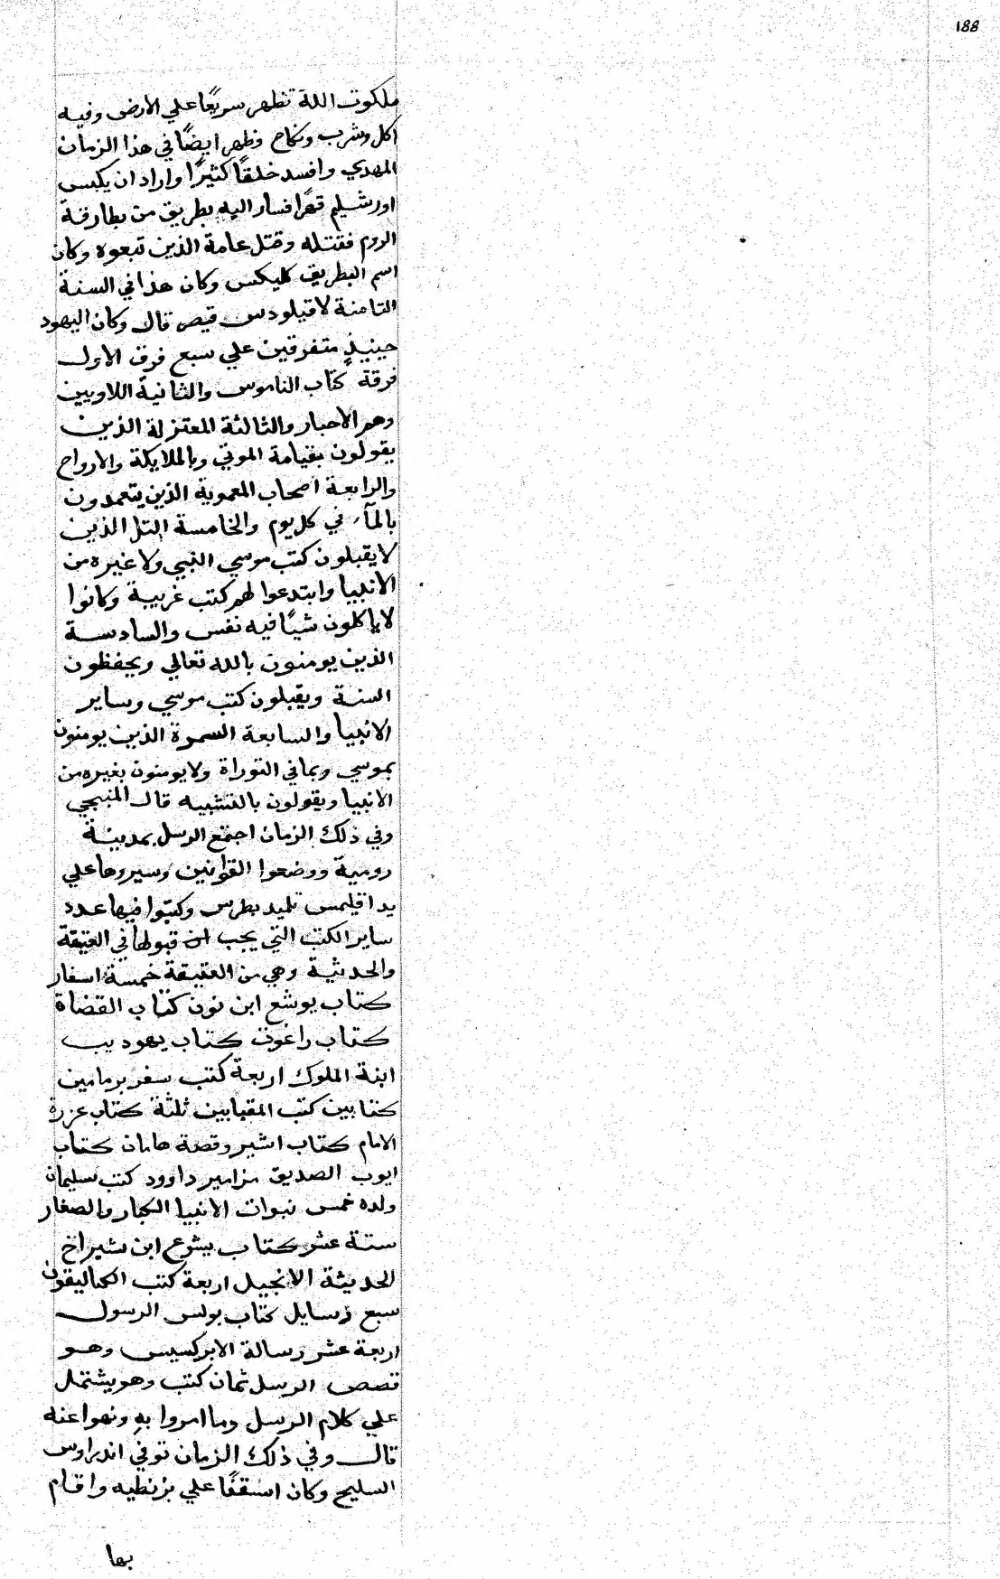 188
ملكوت الله تظهر سريعًا علي الارض وفيه
اكل وشرب ونكاح وظهر ايضًا في هذا الزمان
المهدي وافسد خلقًا كثيرًا واراد ان يكبس
اورشليم قهرًا فسار اليه بطريق من بطارقة
الروم فقتله وقتل عامة الذين تبعوه وكان
اسم البطريق كليكس وكان هذا في السنة
الثامنة لاقيلودس قيصر قال وكان اليهود
حينيذٍ متفرقين علي سبع فرق الاول
فرقة كتاب الناموس والثانية اللاويين
وهم الاحبار والثالثة المعتزلة الذين
يقولون بقيامة الموتي وبالملايكة والارواح
والرابعة اصحاب المعمودية الذين يتعمدون
بالمآء في كل يوم والخامسة التل الذين
لا يقبلون كتب موسي النبي ولا غيره من
الانبيا وابتدعوا لهم كتب غريبة وكانوا
لا ياكلون شيًا فيه نفس والسادسة
الذين يومنون بالله تعالي ويحفظون
السنة ويقبلون كتب موسي وساير
الانبيا والسابعة السمرة الذين يومنون
بموسي وبما في التوراة ولا يومنون بغيره من
الانبيا ويقولون بالتشبيه قال المنبجي
وفي ذلك الزمان اجتمع الرسل بمدينة
رومية ووضعوا القوانين وسيروها علي
يد اقليمس تلميد بطرس وكتبوا فيها عدد
ساير الكتب التي يجب قبولها في العتيقة
والحديثة وهي من العتيقة خمسة اسفار
كتاب يوشع ابن نون كتاب القضاة
كتاب راغوث كتاب يهوديب
ابنة الملوك اربعة كتب سفر برمامين
كتابين كتب المقبابين ثلثة كتاب عزرة
الامام كتاب اشير وقصة هامان كتاب
ايوب الصديق مزامير داوود كتب سليمان
ولده خمس نبوات الانبيا الكبار والصغار
ستة عشر كتاب يشوع ابن شيراخ
الحديثة الانجيل اربعة كتب الكتاليقون
سبع رسايل كتاب بولس الرسول
اربعة عشر رسالة الابركسيس وهو
قصص الرسل ثمان كتب وهو يشتمل
علي كلام الرسل وما امروا به ونهوا عنه
قال وفي ذلك الزمان توفي اندراوس
السليح وكان اسقفًا علي بزنطيه واقام
بها